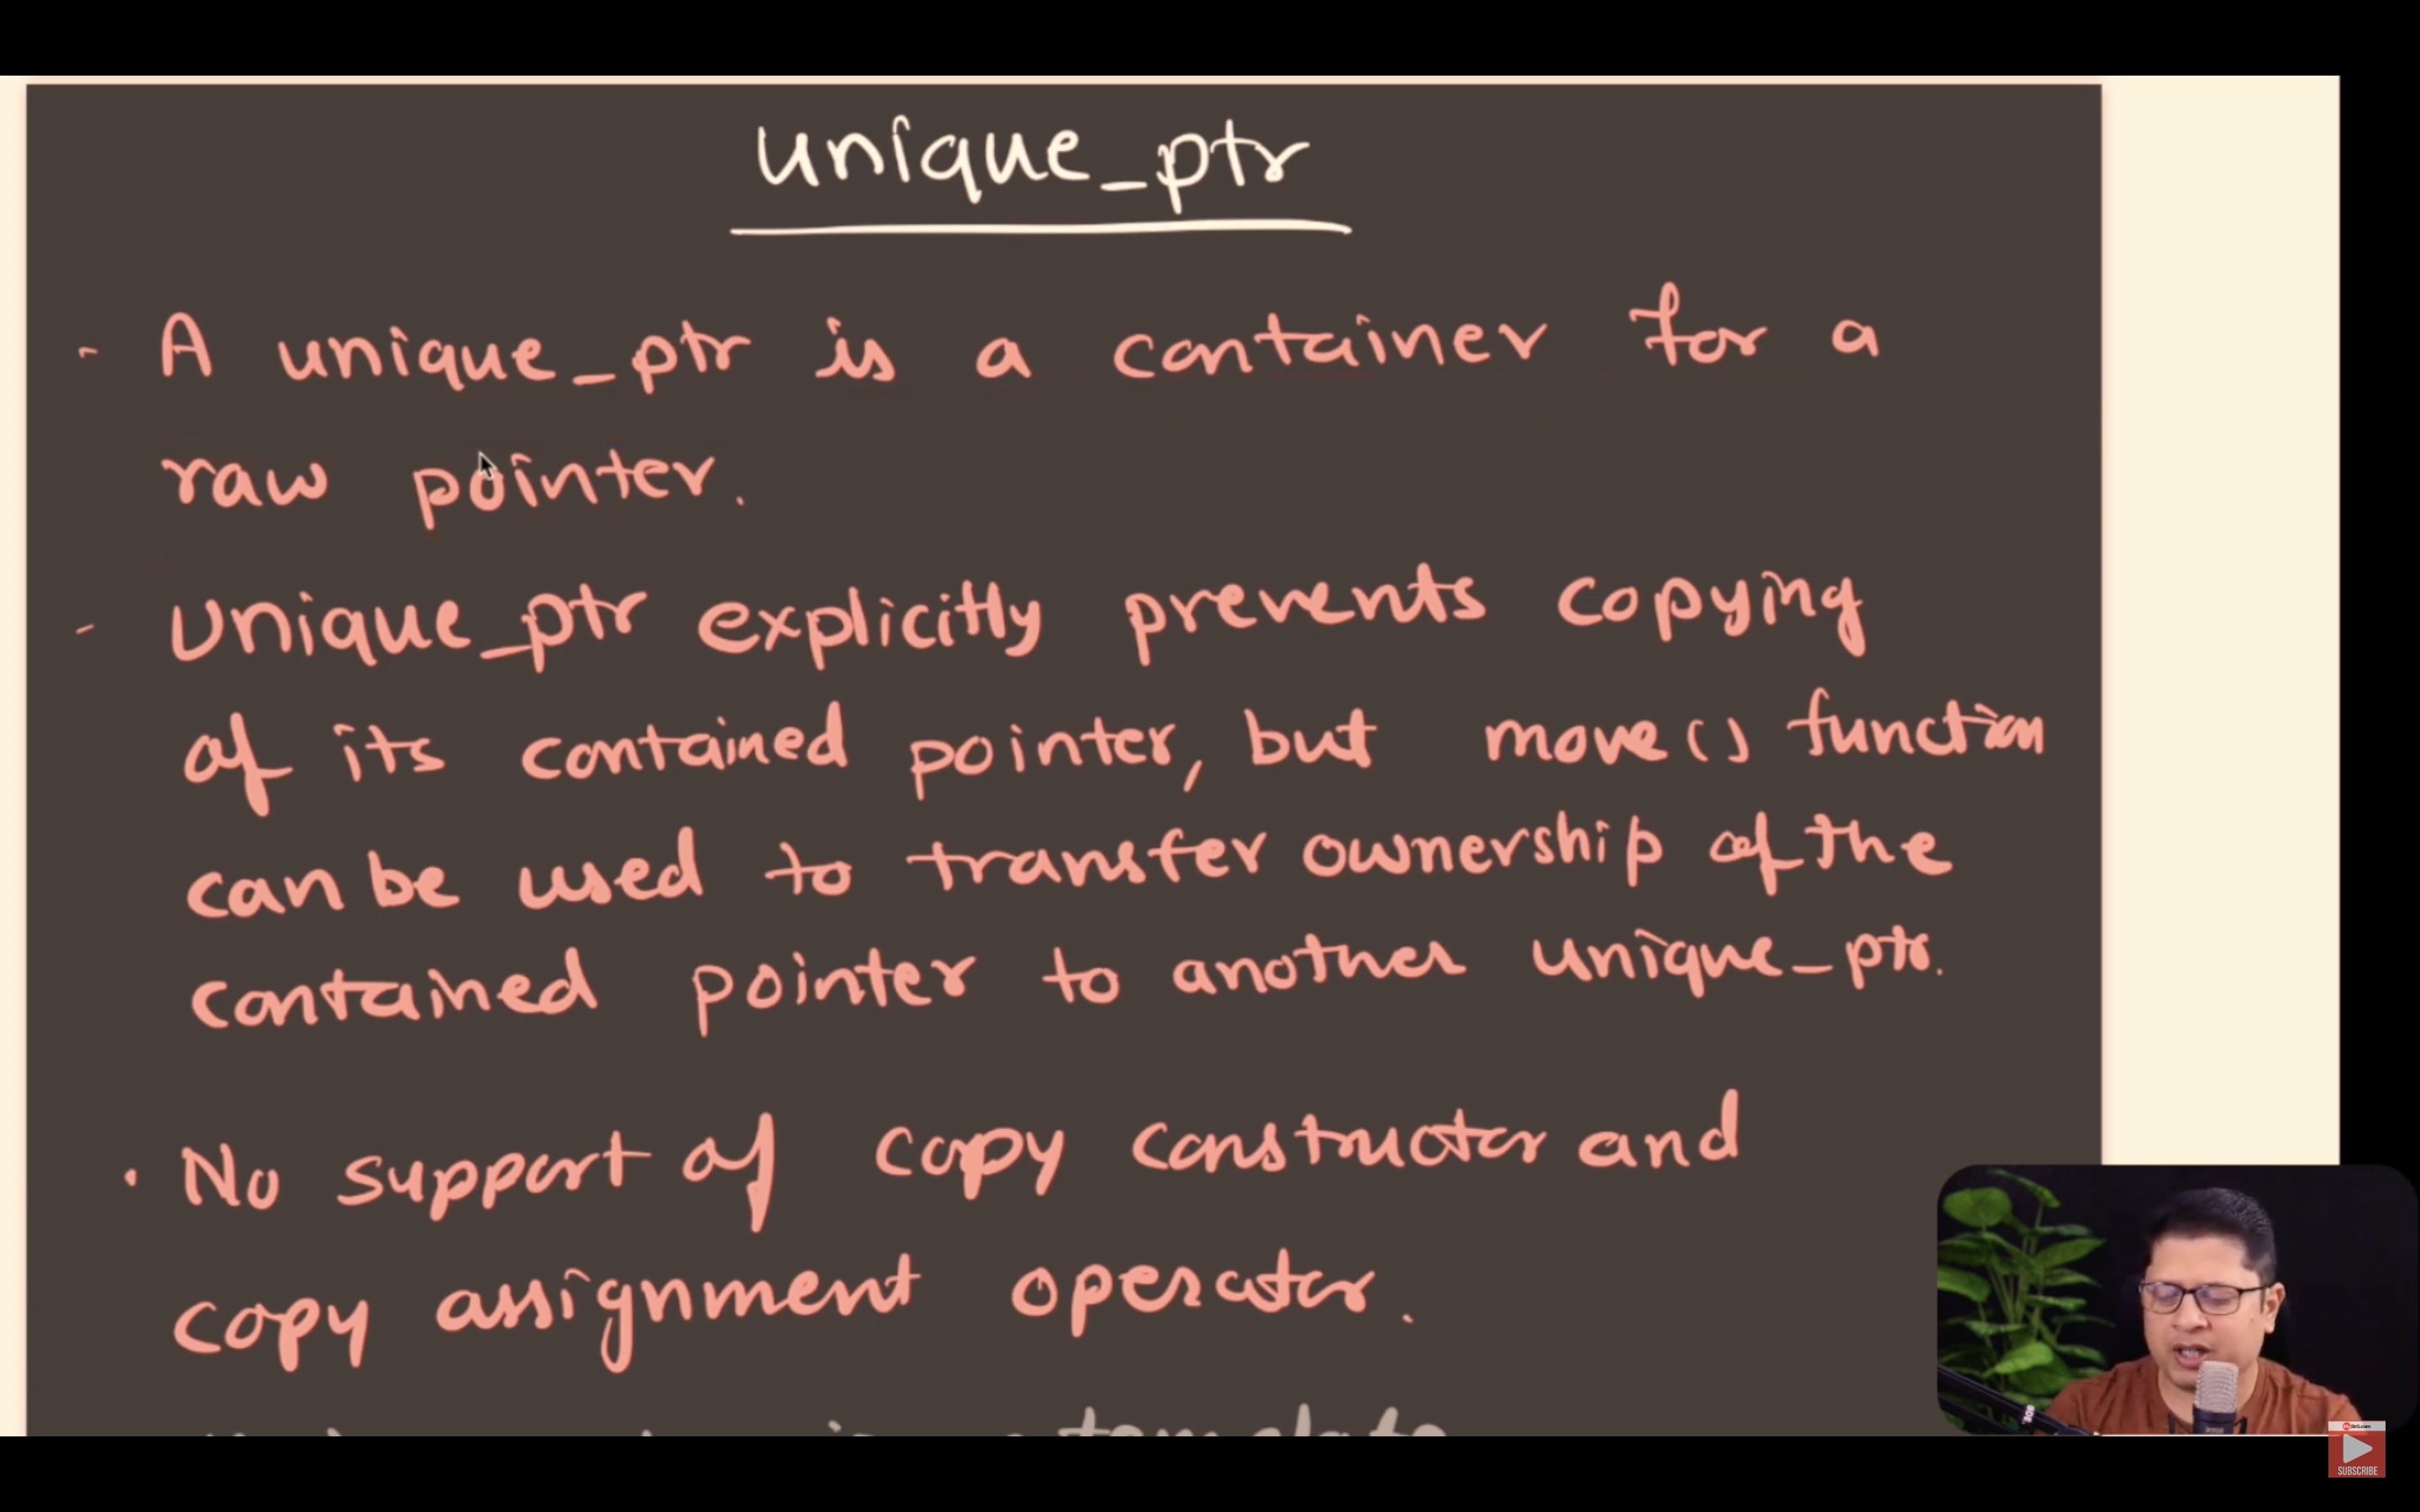 unique_ptr
- A unique_ptr is a container for a
raw pointer.
- Unique_ptr explicitly prevents copying
of its contained pointer, but move() function
can be used to transfer ownership of the
contained pointer to another unique_ptr.
• No support of copy constructor and
copy assignment operator.
template
SUBSCRIBE